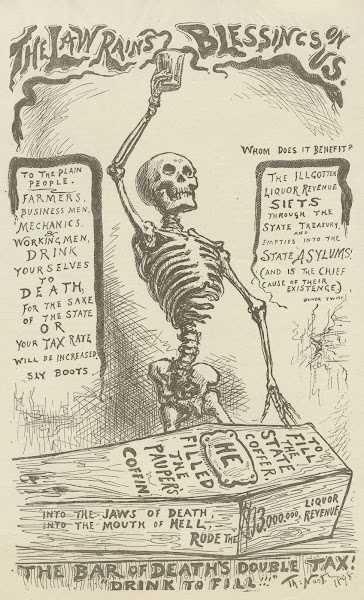 THE LAW RAINS BLESSINGS ON US.
WHOM DOES IT BENEFIT?
TO THE PLAIN
PEOPLE.
FARMERS,
BUSINESS MEN,
MECHANICS.
&
WORKING MEN,
DRINK
YOURSELVES
TO
DEATH,
FOR THE SAKE
OF THE STATE
OR
YOUR TAX RATE
WILL BE INCREASED
SLY BOOTS
THE ILLGOTTEN
LIQUOR REVENUE
SIFTS
THROUGH THE
STATE TREASURY
AND
EMPTIES INTO THE
STATE ASYLUMS!
(AND IS THE CHIEF
CAUSE OF THEIR
EXISTENCE)
TO
FILL
THE
STATE
COFFER
HE
FILLED
THE
PAUPER'S
COFFIN
INTO THE JAWS OF DEATH,
INTO THE MOUTH OF HELL,
RODE THE $13.000.000, LIQUOR
REVENUE
THE BAR OF DEATH'S DOUBLE TAX!
"DRINK TO FILL!!!"
Th: Nast.